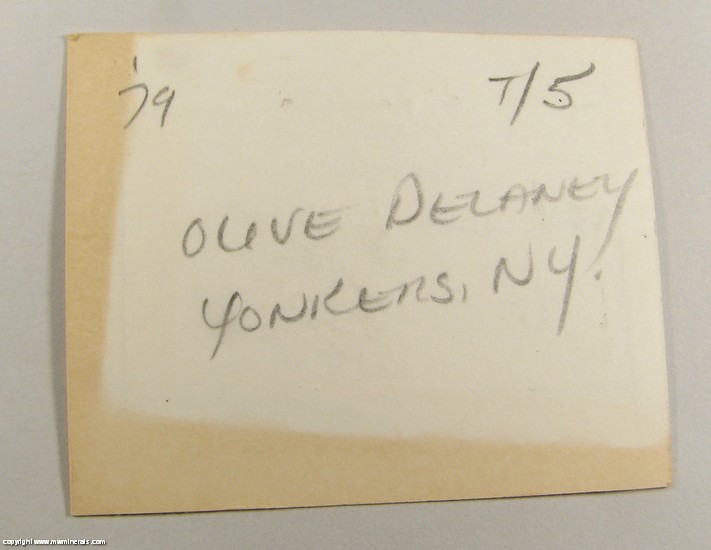 '79 T/5
OLIVE DELANEY
YONKERS, NY.
copyright www.mwminerals.com